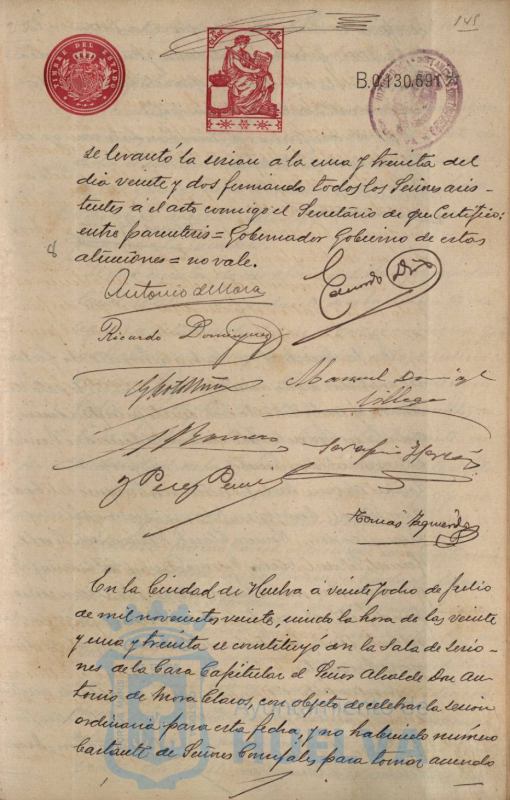 145
TIMBRE DEL ESTADO
B.0.130.691
se levantó la sesion á la una y treinta del
dia veinte y dos firmando todos los Señores asis-
tentes á el acto conmigo el Secretario de que Certifico:
entre parentesis = Gobernador Gobierno de estas
atenciones = no vale.
Antonio de Mora
Eduardo Díaz
Ricardo Dominguez
Manuel Domingz
Villega
Romero
Serafin
J Perez
Tomás Izquierdo
En la Ciudad de Huelva á veinte y ocho de Julio
de mil novecientos veinte, siendo la hora de las veinte
y una y treinta se constituyó en la Sala de Sesio-
nes de la Casa Capitular el Señor Alcalde Don An-
tonio de Mora Claros, con objeto de celebrar la sesion
ordinaria para esta fecha, y no habiendo número
bastante de Señores Concejales para tomar acuerdo
HUELVA